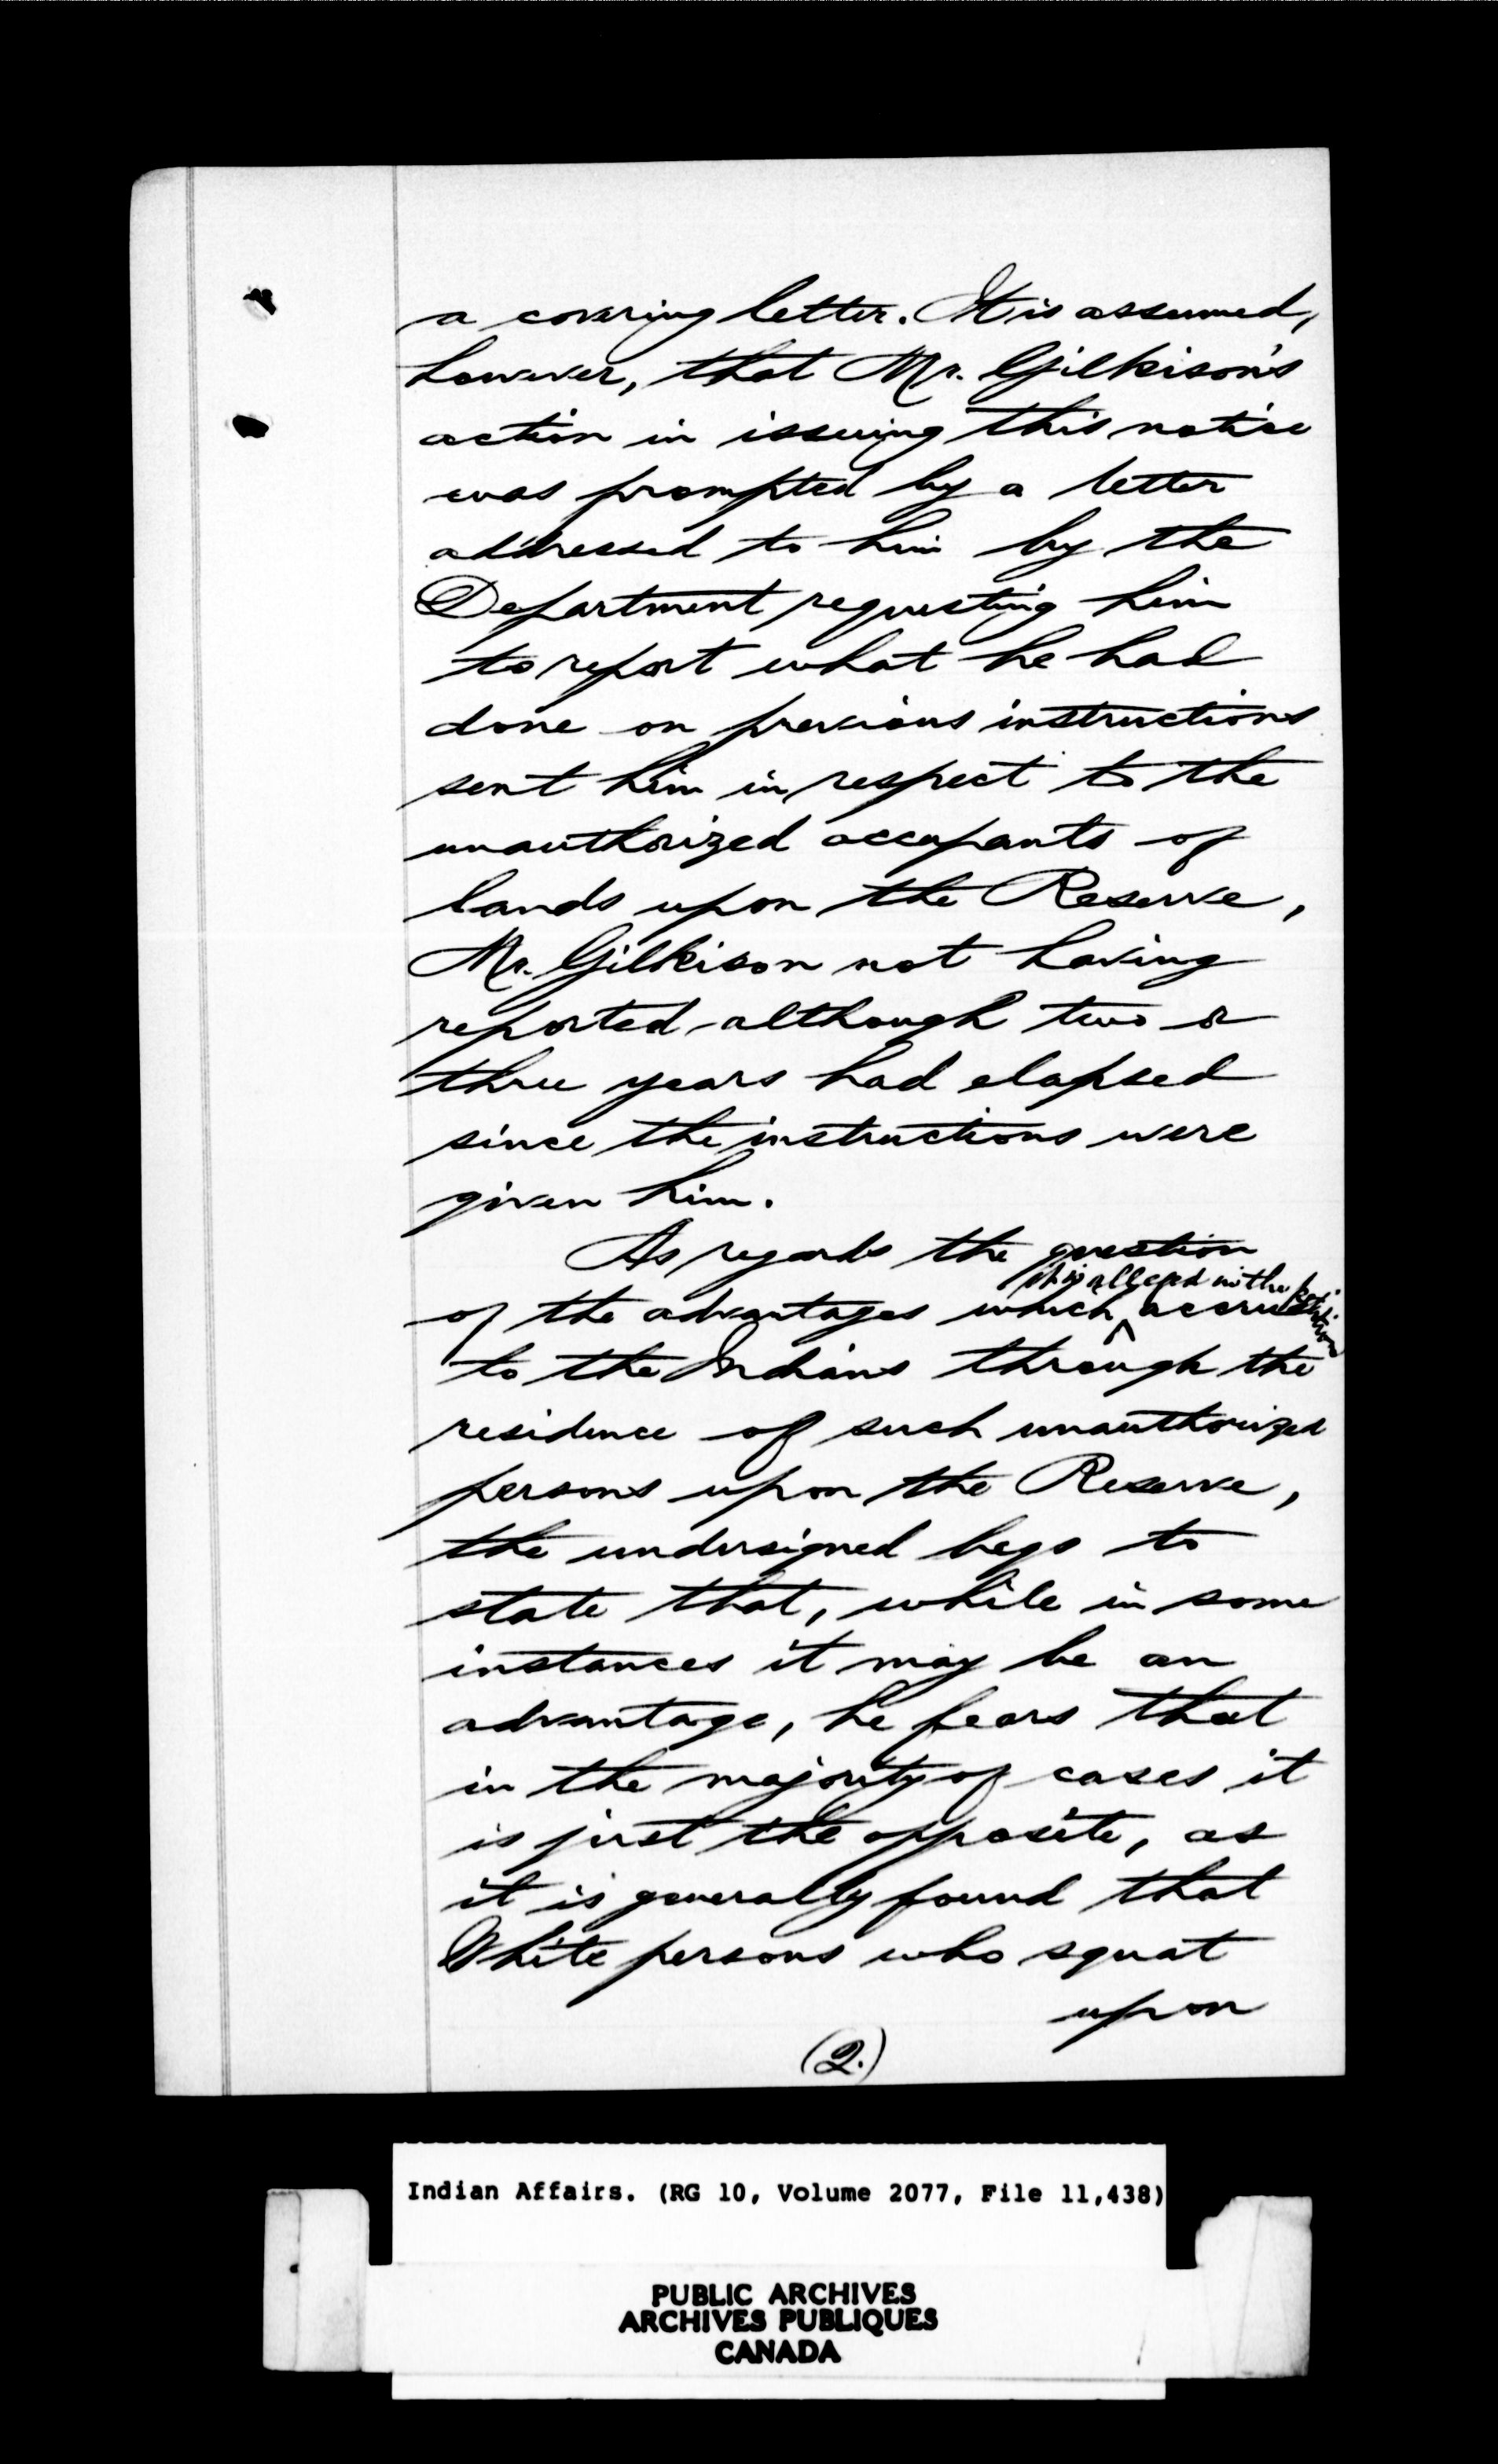 a covering letter. It is assumed,
however, that Mr. Gilkison's
action in issuing this notice
was prompted by a letter
addressed to him by the
Department requesting him
to report what he had
done on previous instructions
sent him in respect to the
unauthorized occupants of
lands upon the Reserve,
Mr. Gilkison not having
reported although two or
three years had elapsed
since the instructions were
given him.
As regards the question
it is alleged in the petition
of the advantages which ^ accrue
to the Indians through the
residence of such unauthorized
persons upon the Reserve,
the undersigned begs to
state that, while in some
instances it may be an
advantage, he fears that
in the majority of cases it
is just the opposite, as
it is generally found that
White persons who squat
upon
(2.)
Indian Affairs. (RG 10, Volume 2077, File 11,438)
PUBLIC ARCHIVES
ARCHIVES PUBLIQUES
CANADA